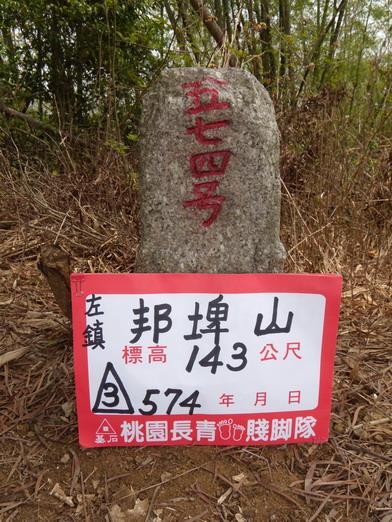 五七四号
左鎮
邦埤山
標高143公尺
3 574 年 月 日
基石 桃園長青賤脚隊